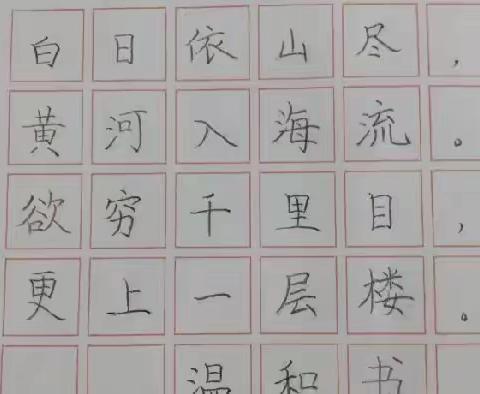 白日依山尽，
黄河入海流。
欲穷千里目，
更上一层楼。
温和书